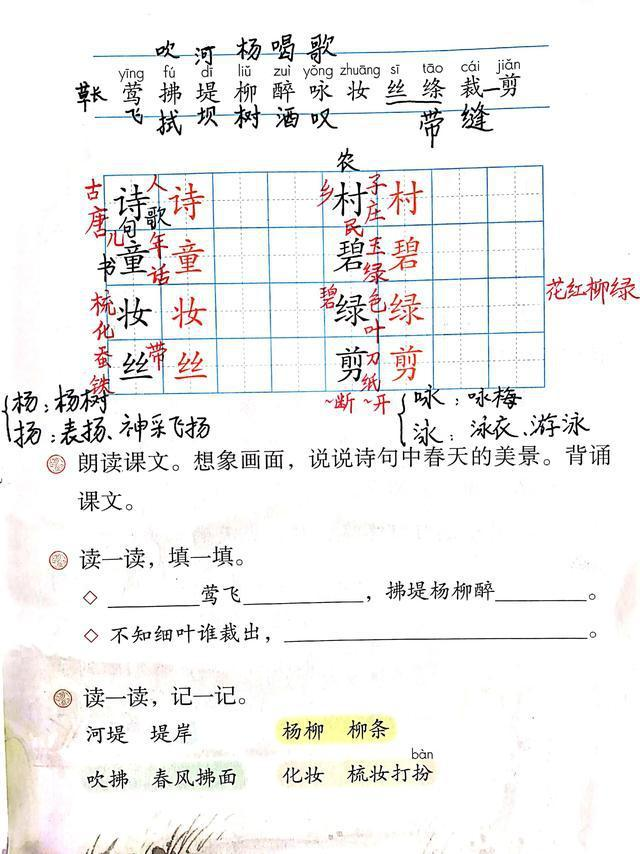 吹 河 杨 喝 歌
yīng fú dī liǔ zuì yǒng zhuāng sī tāo cái jiǎn
草长 莺 拂 堤 柳 醉 咏 妆 丝 绦 裁—剪
飞 拭 坝 树 酒 叹 带 缝
古唐 诗 人 歌 句 诗 乡 农 村 民 子庄 村
儿 书 童 年 话 童 碧 玉 绿 碧
梳 化 妆 妆 碧 绿 色 叶 绿 花红柳绿
蚕 铁 丝 带 丝 剪 刀 纸 剪
~断 ~开
杨：杨树
扬：表扬、神采飞扬
咏：咏梅
泳：泳衣、游泳
朗读课文。想象画面，说说诗句中春天的美景。背诵
课文。
读一读，填一填。
◇ ________莺飞__________，拂堤杨柳醉________。
◇ 不知细叶谁裁出，__________________________。
读一读，记一记。
河堤 堤岸 杨柳 柳条
bàn
吹拂 春风拂面 化妆 梳妆打扮